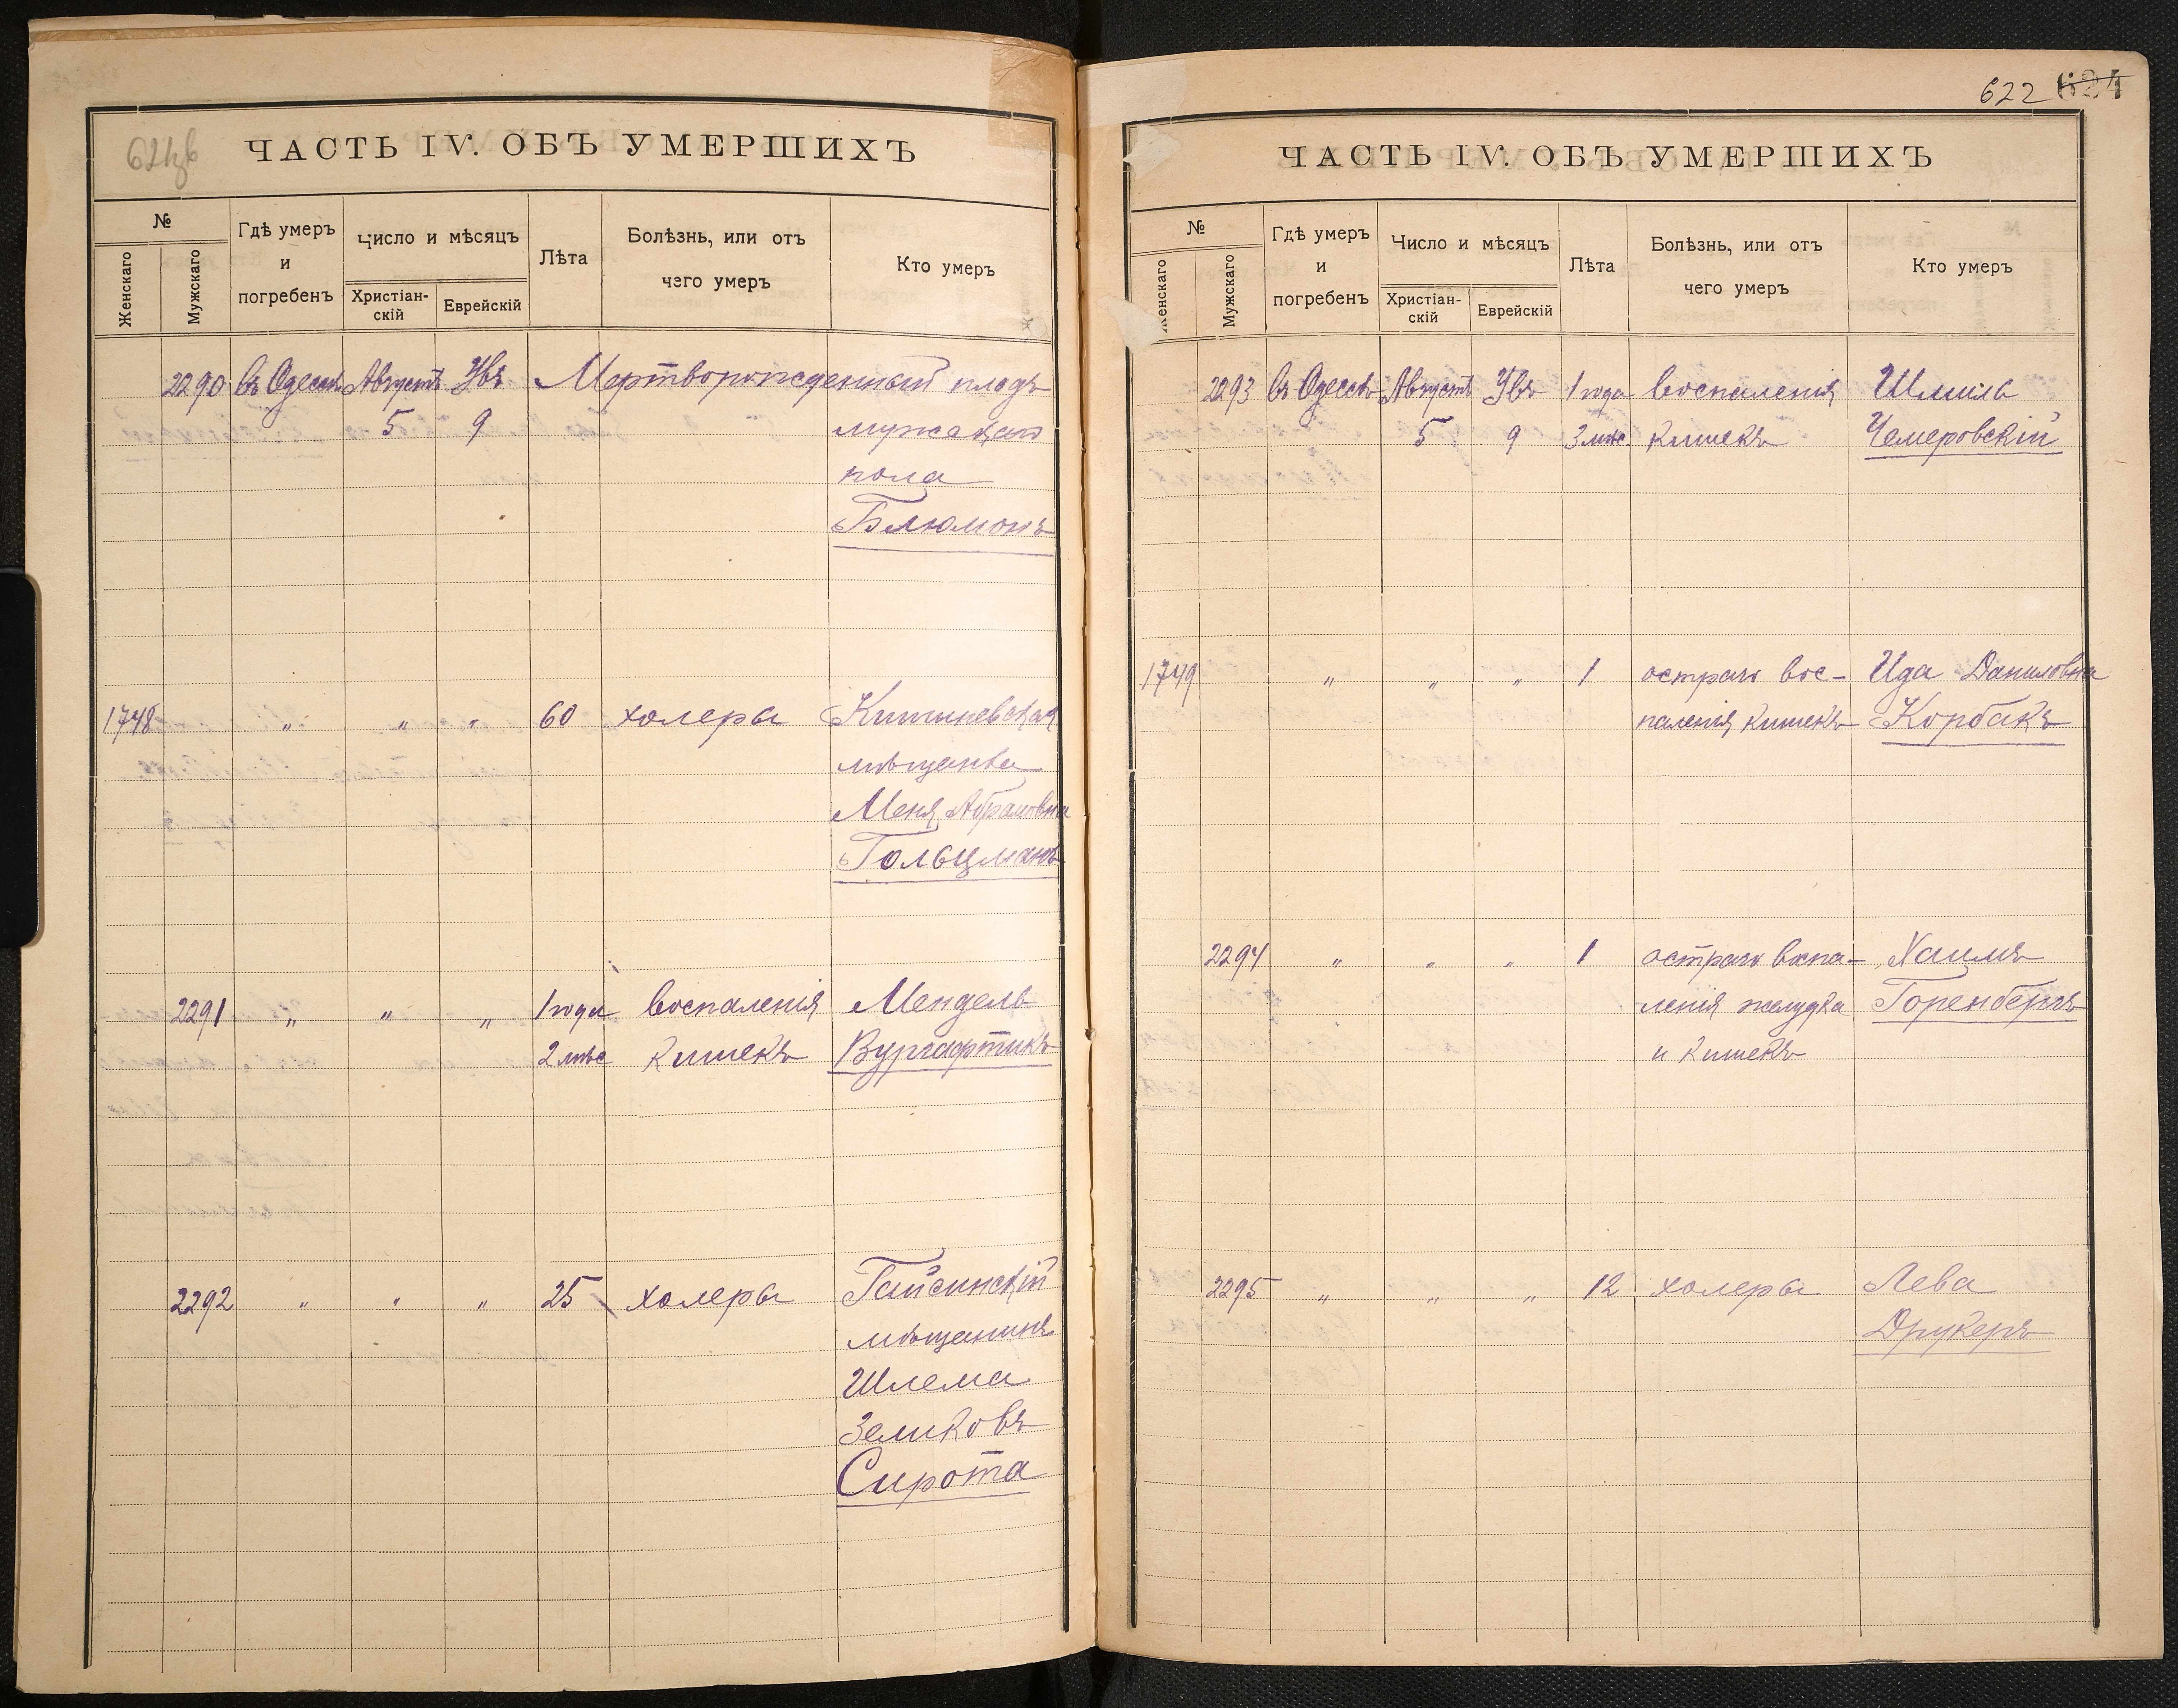 621об
ЧАСТЬ IV. ОБЪ УМЕРШИХЪ
№
Женскаго
Мужскаго
Гдѣ умеръ
и
погребенъ
Число и мѣсяцъ
Христіан-
скій
Еврейскій
Лѣта
Болѣзнь, или отъ
чего умеръ
Кто умеръ
2290 въ Одессѣ Августъ Увъ Мертворожденный плодъ
5 9 мужскаго
пола
Блюмонъ
1748 " " " 60 холеры Кишиневская
мѣщанка
Меня Абрамовна
Гольцманъ
2291 " " " 1 года воспаленія Мендель
2 мѣс кишекъ Вургафтикъ
2292 " " " 25 холеры Гайсинскій
мѣщанинъ
Шлема
Зеликовъ
Сирота
622 624
ЧАСТЬ IV. ОБЪ УМЕРШИХЪ
№
Женскаго
Мужскаго
Гдѣ умеръ
и
погребенъ
Число и мѣсяцъ
Христіан-
скій
Еврейскій
Лѣта
Болѣзнь, или отъ
чего умеръ
Кто умеръ
2293 въ Одессѣ Августъ Увъ 1 года воспаленія Шмиль
5 9 3 мѣс. кишекъ Чемеровскій
1749 " " " 1 остраго вос- Ида Даниловна
паленія кишекъ Корбакъ
2294 " " " 1 остраго воспа- Хаимъ
ленія желудка Горенбергъ
и кишекъ
2295 " " " 12 холеры Лева
Друкеръ